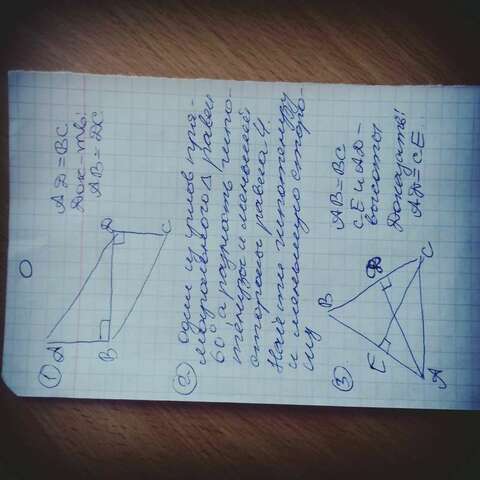 ①
A
B
D
C
AD = BC
Док-ть.
AB = DC
② один из углов пря-
моугольного Δ равен
60° а разность гипо-
тенузы и меньшей
стороны равна 4.
Найти гипотенузу
и меньшую сторо-
ну
③
B
E
D
A
C
AB = BC
CE и AD -
высоты
Доказать!
AD = CE